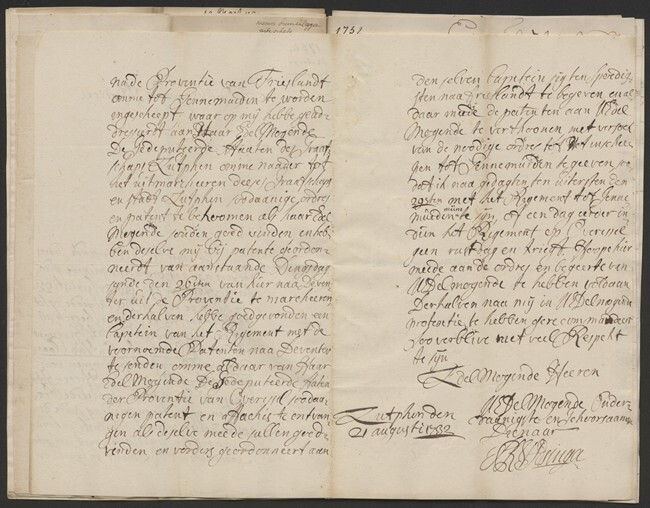 1732
na de Proventie van Frieslandt
omme tot Gennemuiden te worden
ingescheept waar op mij hebbe gead-
dresseert aan Haar Edel Mogende
De Gedeputeerde Staaten des Graaf-
schaps Zutphen omme naader tot
het uitmarcheeren deese Graafschap
en stadt Zutphen soodaanige ordres
en patent te bekoomen als haar Edel
Mogende souden goed vinden en heb-
ben deselve mij bij patente geordon-
neerdt van aanstaande Dingsdag
sijnde den 26sten van hier naa Deven-
ter uit de Proventie te marcheeren
en derhalven hebbe goedgevonden een
Capitein van het Regement met de
voornoemde Patenten naa Deventer
te senden omme aldaar van Haar
Edel Mogende De Gedeputeerde Staaten
der Proventie van Overijsel soodaa-
nigen patent en attachis te ontvan-
gen als deselve meede sullen goed-
vinden en vorders geordonneert aan
den selven Capitein sig ten spoedig-
sten naa Frieslandt te begeven en al-
daar meede de patenten aan U Edel
Mogende te verthoonen met versoek
van de noodige ordres tot het inschee-
gen tot Gennemuiden te geven so
dat ik naa gedagten uitersten den
29sten met het Regement tot Genne
muiden te sijn, of een dag eerder in
dien het Regement op Overeissel
geen rustdag en krieft Hoope hier
meede aan de ordres en begeerte van
U Edelmogende te hebben voldaan
Derhalven naa mij in U Edelmogende
protentie te hebben gerecommandeert
soo verblive met veel Respeckt
te sijn
Edel Mogende Heeren
U Edel Mogende Onder-
daanigste en gehoorsaame
Dienaar
Zutphen den
21 augusti 1732